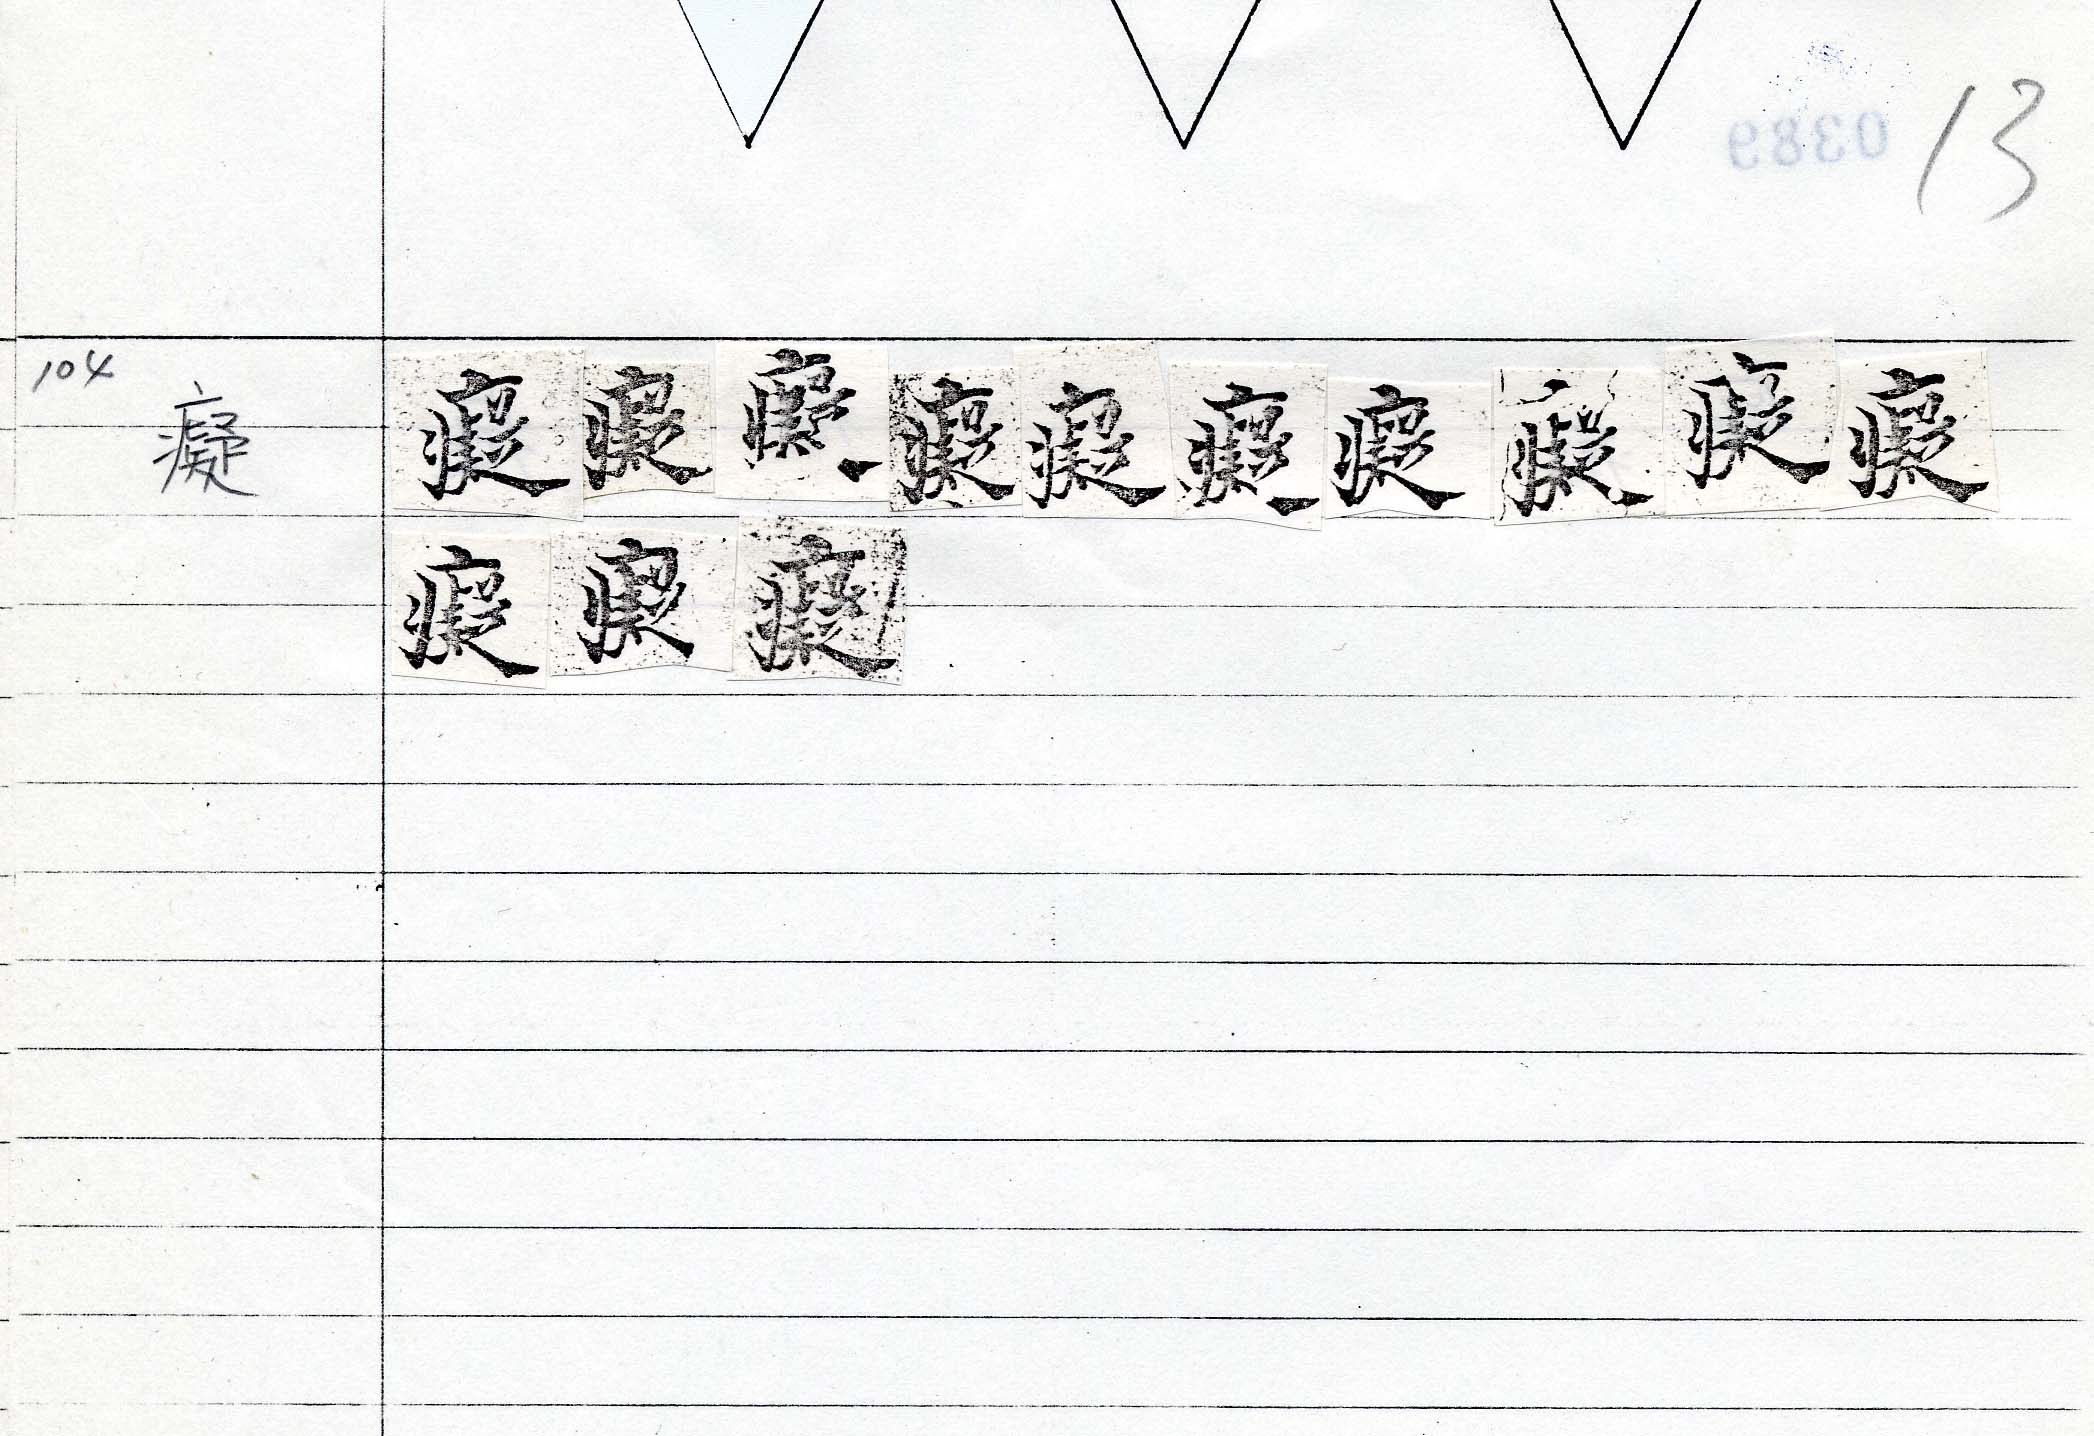 0389
13
104
癡
癡癡癡癡癡癡癡癡癡癡
癡癡癡